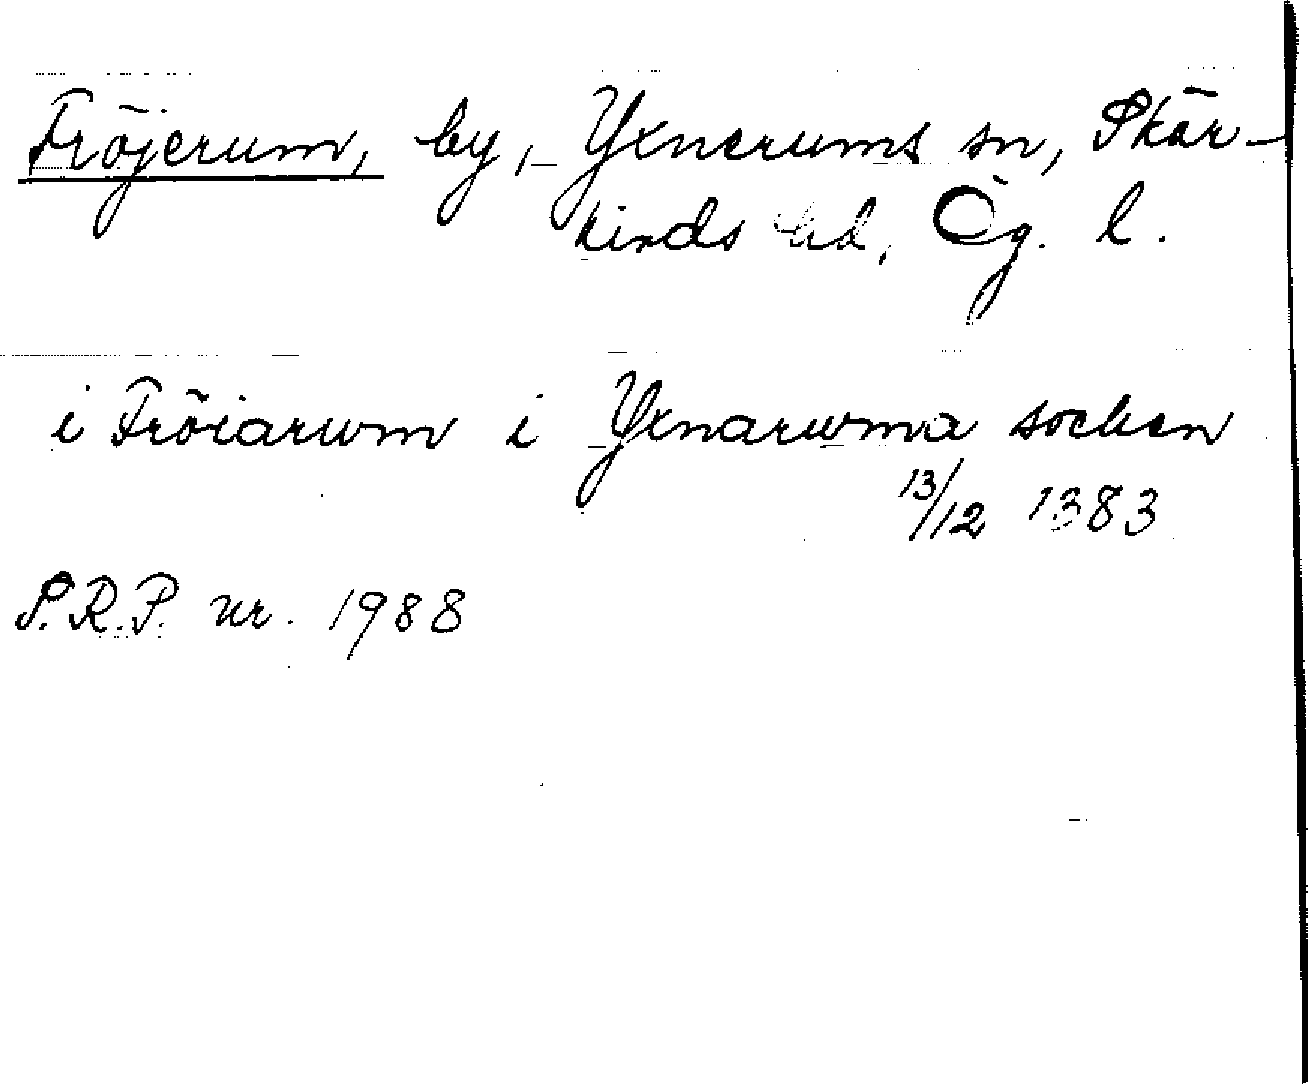 Fröjerum, by, Yxnerums sn, Skär-
kinds hd, Ög. l.
i Fröiarum i Yxnaruma socken
13/12 1383
S.R.P. nr. 1988